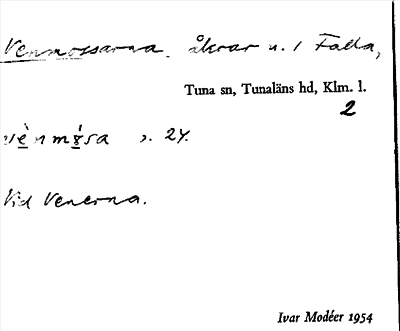 Venmossarna. åkrar n. 1 Falla,
Tuna sn, Tunaläns hd, Klm. l.
2
s. 24.
Vid Venerna.
Ivar Modéer 1954